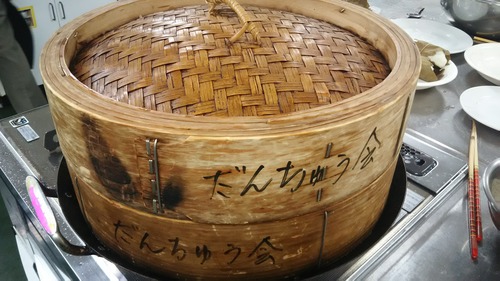 だんちゅう会
だんちゅう会